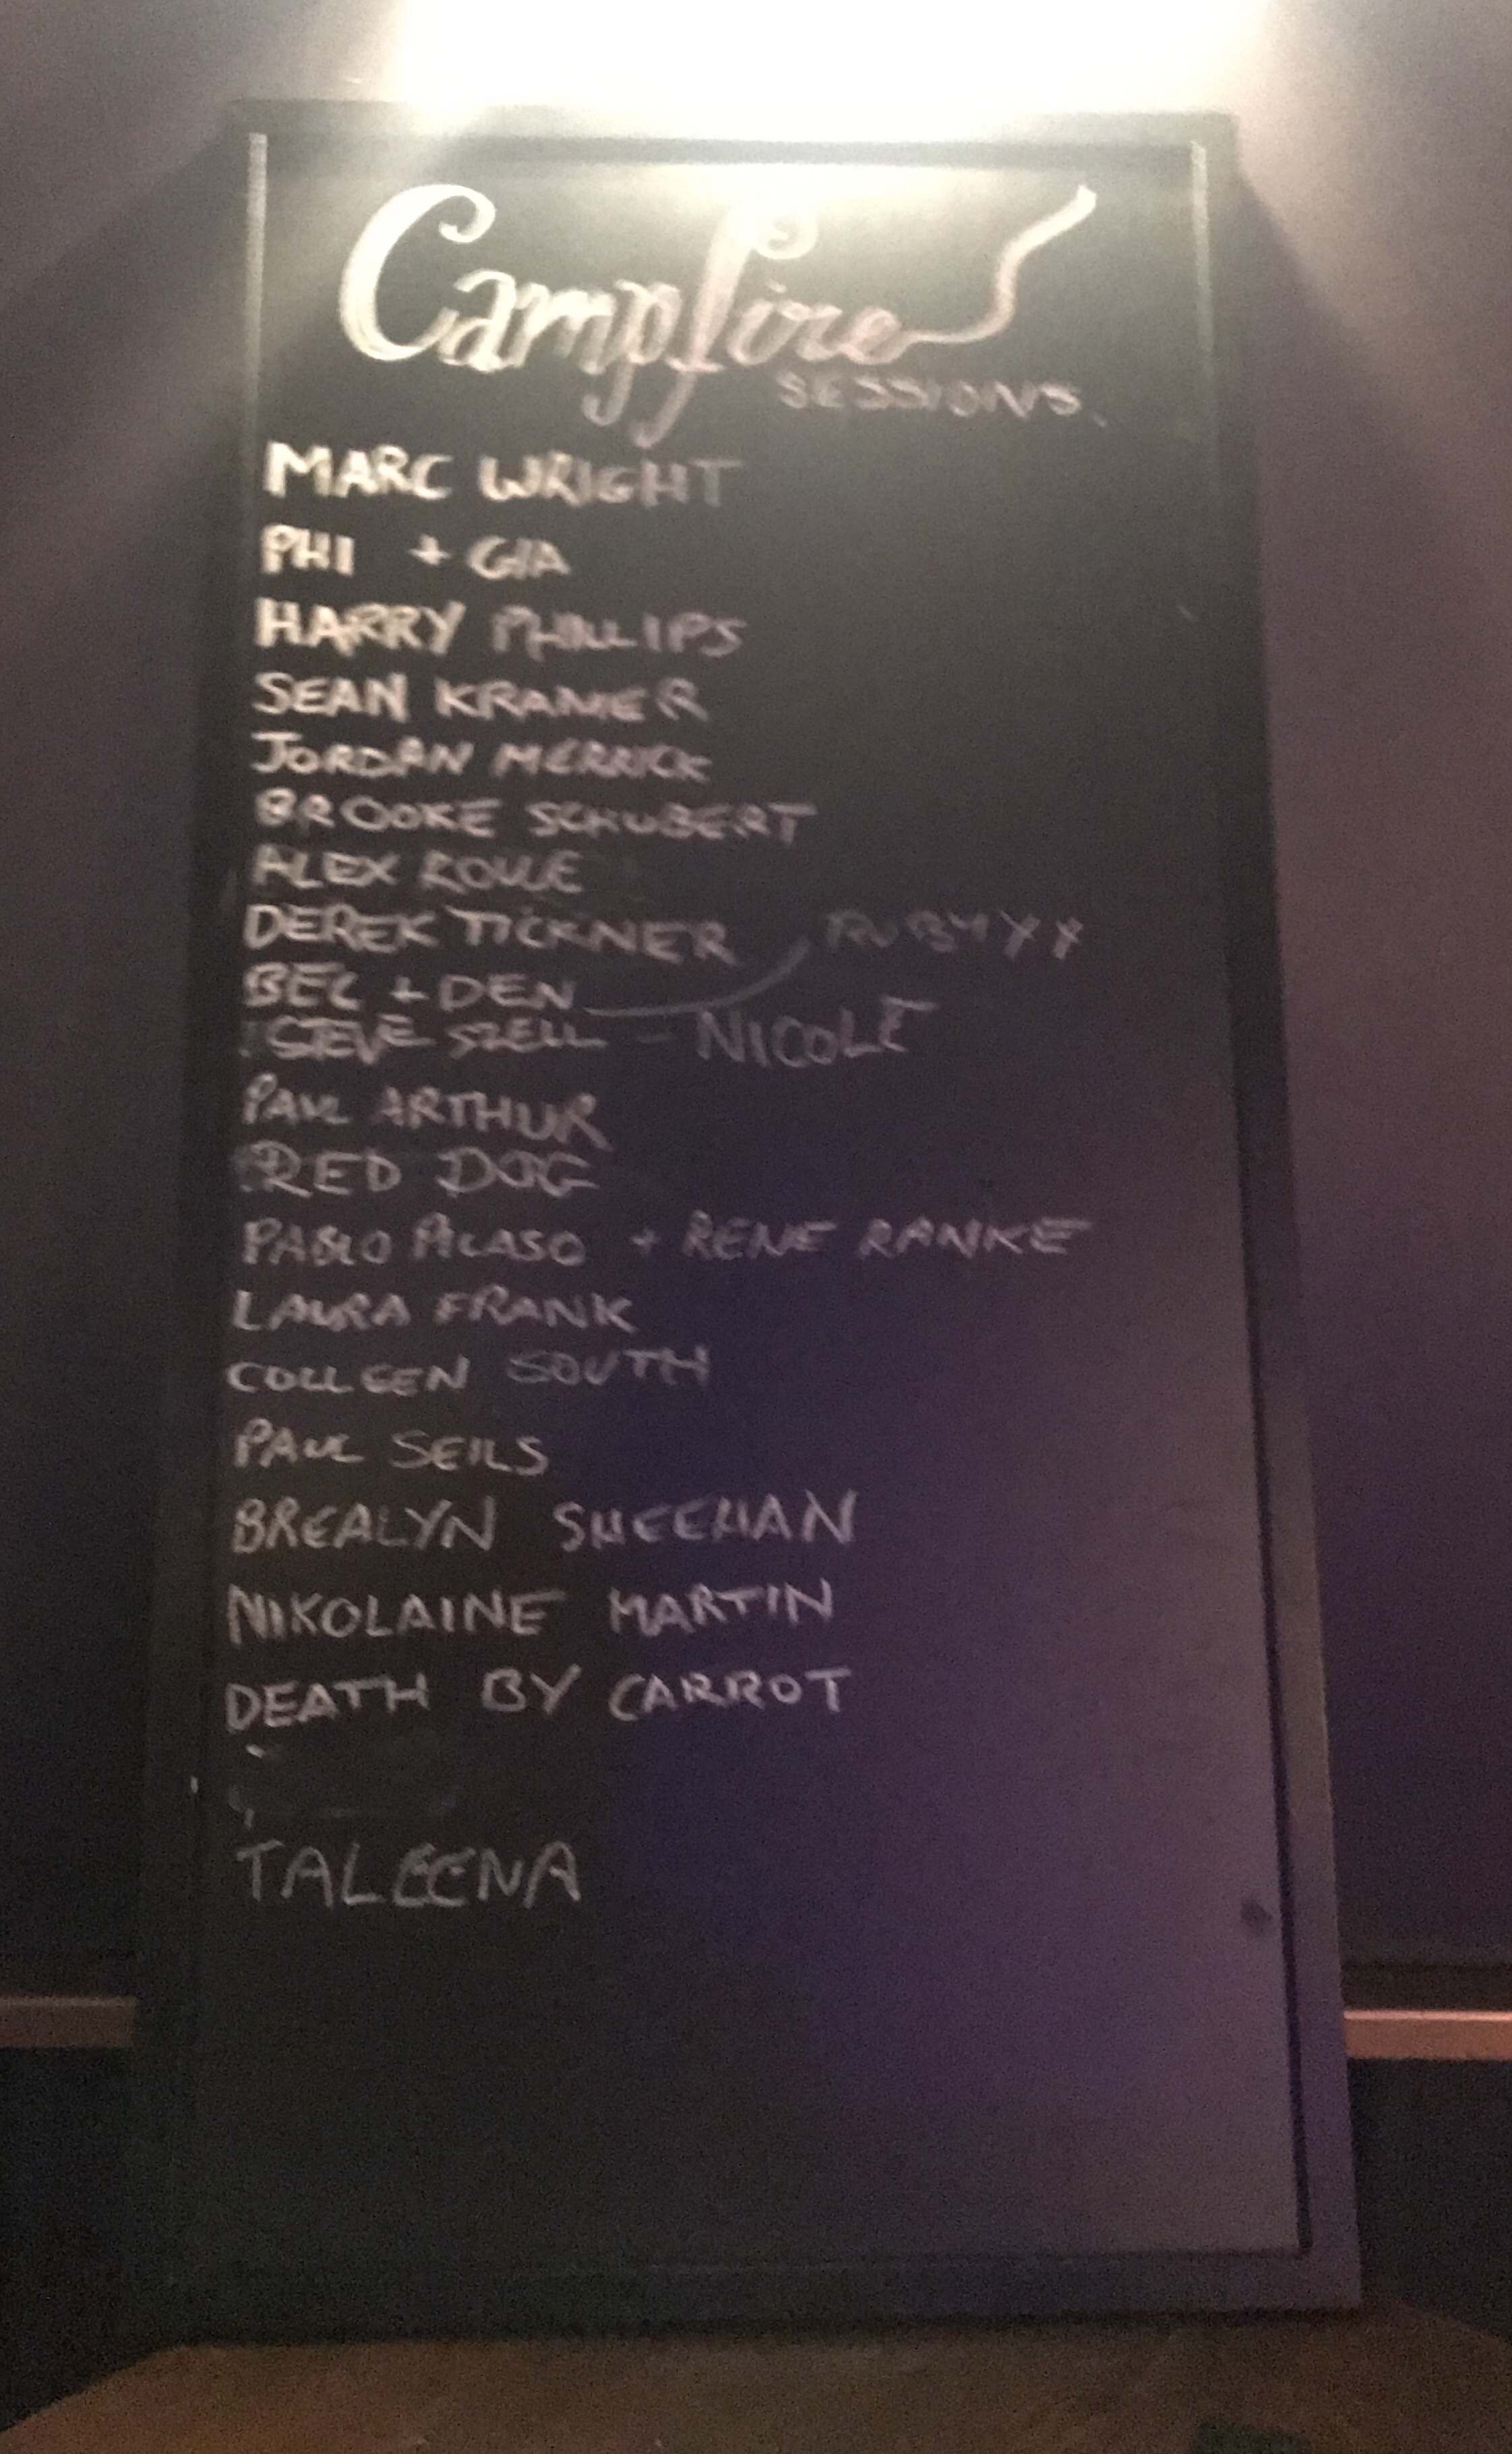 Campfire
SESSIONS
MARC WRIGHT
PHI + GIA
HARRY PHILLIPS
SEAN KRAMER
JORDAN MERRICK
BROOKE SCHUBERT
ALEX
DEREK TICKNER
RUBY
BEC + DEN
STEVE SZELL - NICOLE
PAUL ARTHUR
RED DOG
PABLO PICASO + RENE RANKE
LAURA FRANK
COLLEEN SOUTH
PAUL SEILS
BREALYN SHEEHAN
NIKOLAINE MARTIN
DEATH BY CARROT
TALEENA